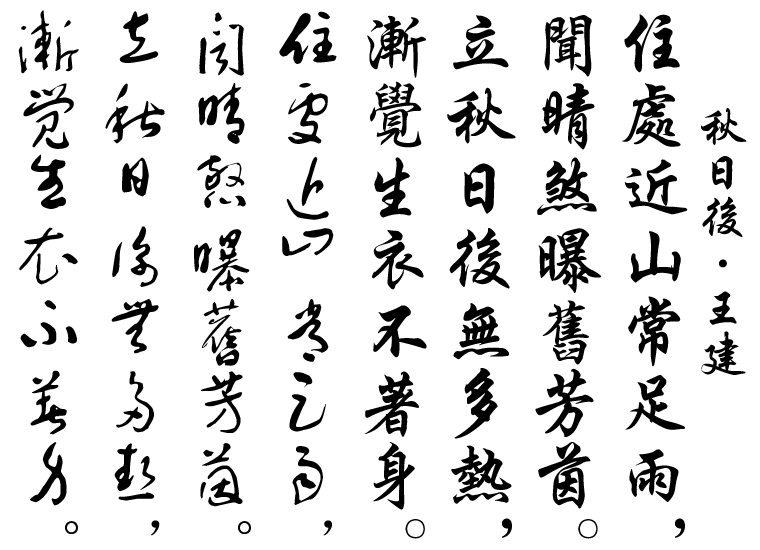 秋日後・王建
住處近山常足雨，
聞晴煞曝舊芳茵。
立秋日後無多熱，
漸覺生衣不著身。
住處近山常足雨，
聞晴煞曝舊芳茵。
立秋日後無多熱，
漸覺生衣不著身。